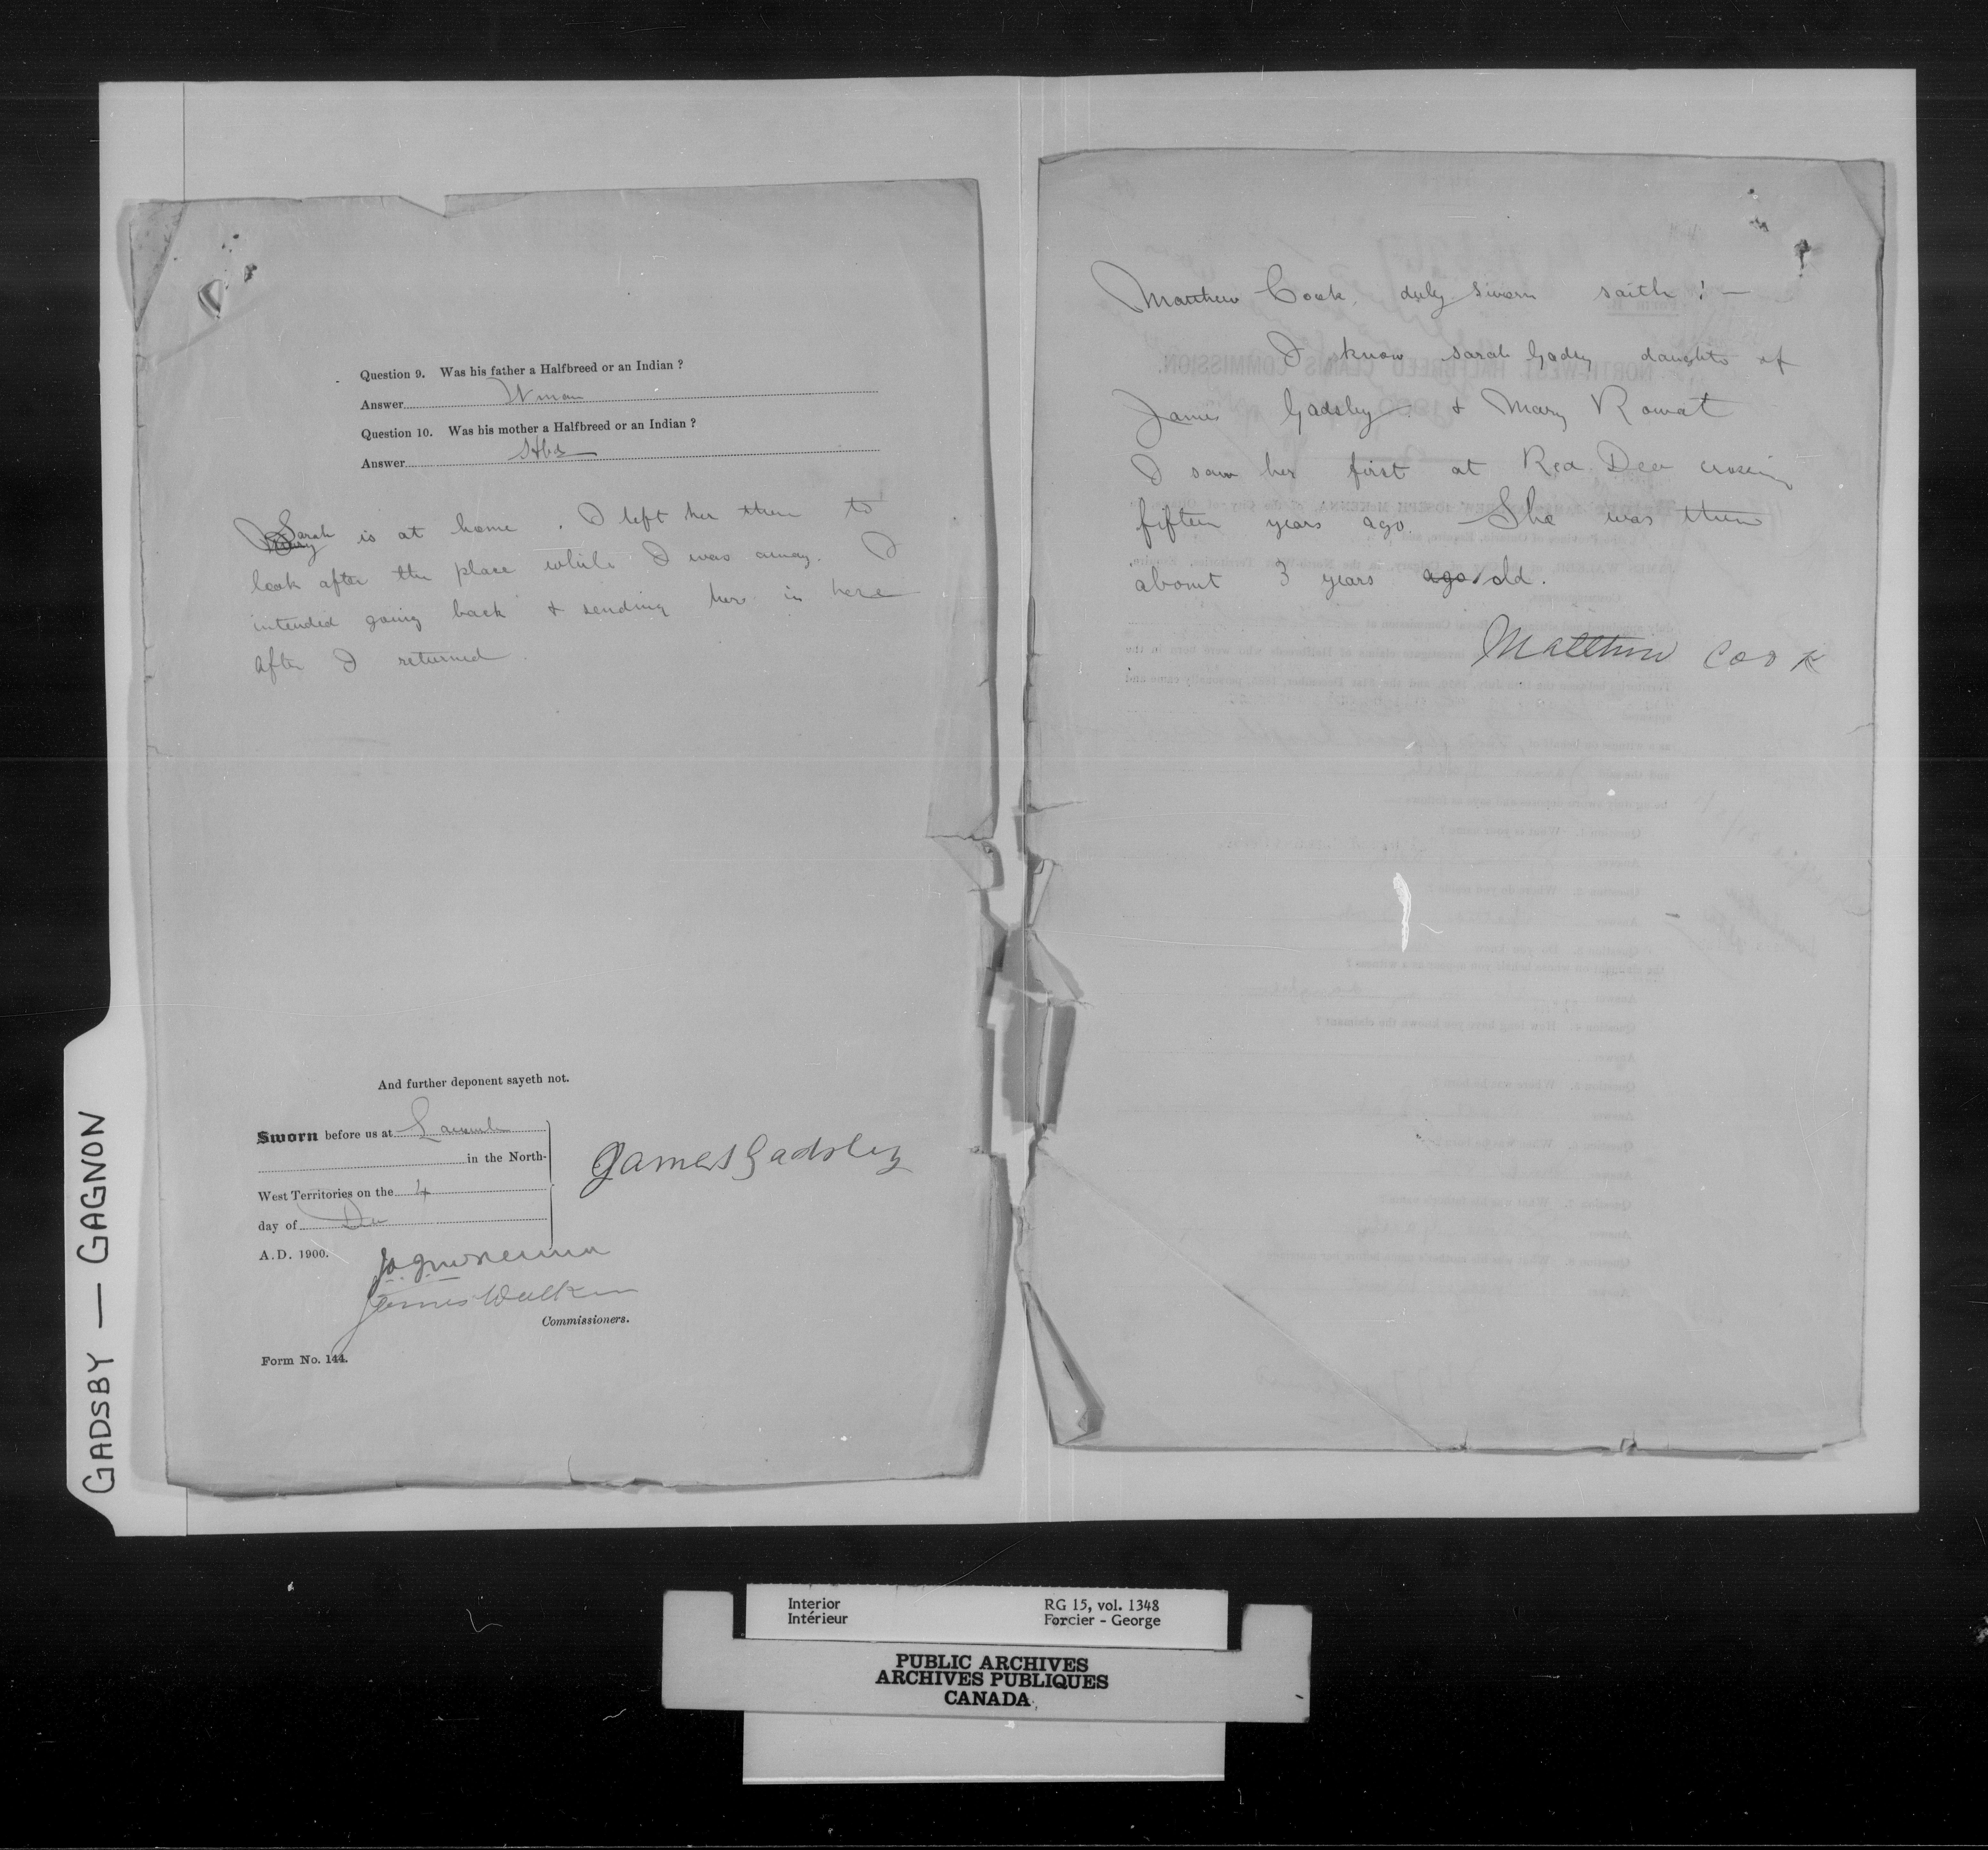 Question 9. Was his father a Halfbreed or an Indian ?
Answer W man
Question 10. Was his mother a Halfbreed or an Indian ?
Answer Hbd
Sarah is at home. I left her there to
look after the place while I was away. I
intended going back & sending her in here
after I returned.
And further deponent sayeth not.
Sworn before us at Lacombe
in the North-
West Territories on the 4
day of Dec
A.D. 1900.
James Gadsby
James Walker
Commissioners.
Form No. 144.
Matthew Cook duly sworn saith : —
I know Sarah Gadsby daughter of
James Gadsby & Mary Rowat
I saw her first at Red Deer crossing
fifteen years ago. She was then
about 3 years ago old.
Matthew Cook
GADSBY — GAGNON
Interior
Intérieur
RG 15, vol. 1348
Forcier - George
PUBLIC ARCHIVES
ARCHIVES PUBLIQUES
CANADA